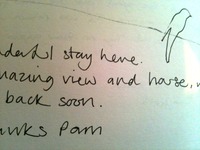 nderful stay here.
mazing view and horse,
back soon.
anks Pam